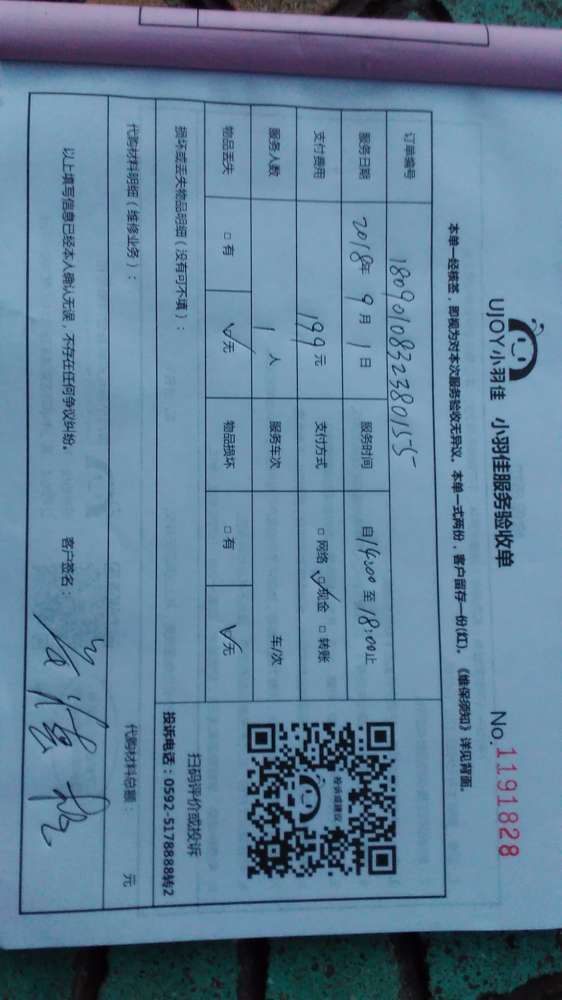 UJOY小羽佳 小羽佳服务验收单 No.1191828
本单一经核签，即视为对本次服务验收无异议。本单一式两份，客户留存一份(红)。《维保须知》详见背面。
订单编号 1809010832380155
服务日期 2018年 9月 1日 服务时间 自14:00至18:00止
支付费用 199元 支付方式 □网络 ☑现金 □转账
服务人数 1人 服务车次 车/次
物品丢失 □有 ☑无 物品损坏 □有 ☑无
损坏或丢失物品明细（没有可不填）：
投诉或建议
扫码评价或投诉
投诉电话：0592-5178888转2
代购材料明细（维修业务）： 代购材料总额： 元
以上填写信息已经本人确认无误，不存在任何争议纠纷。 客户签名：